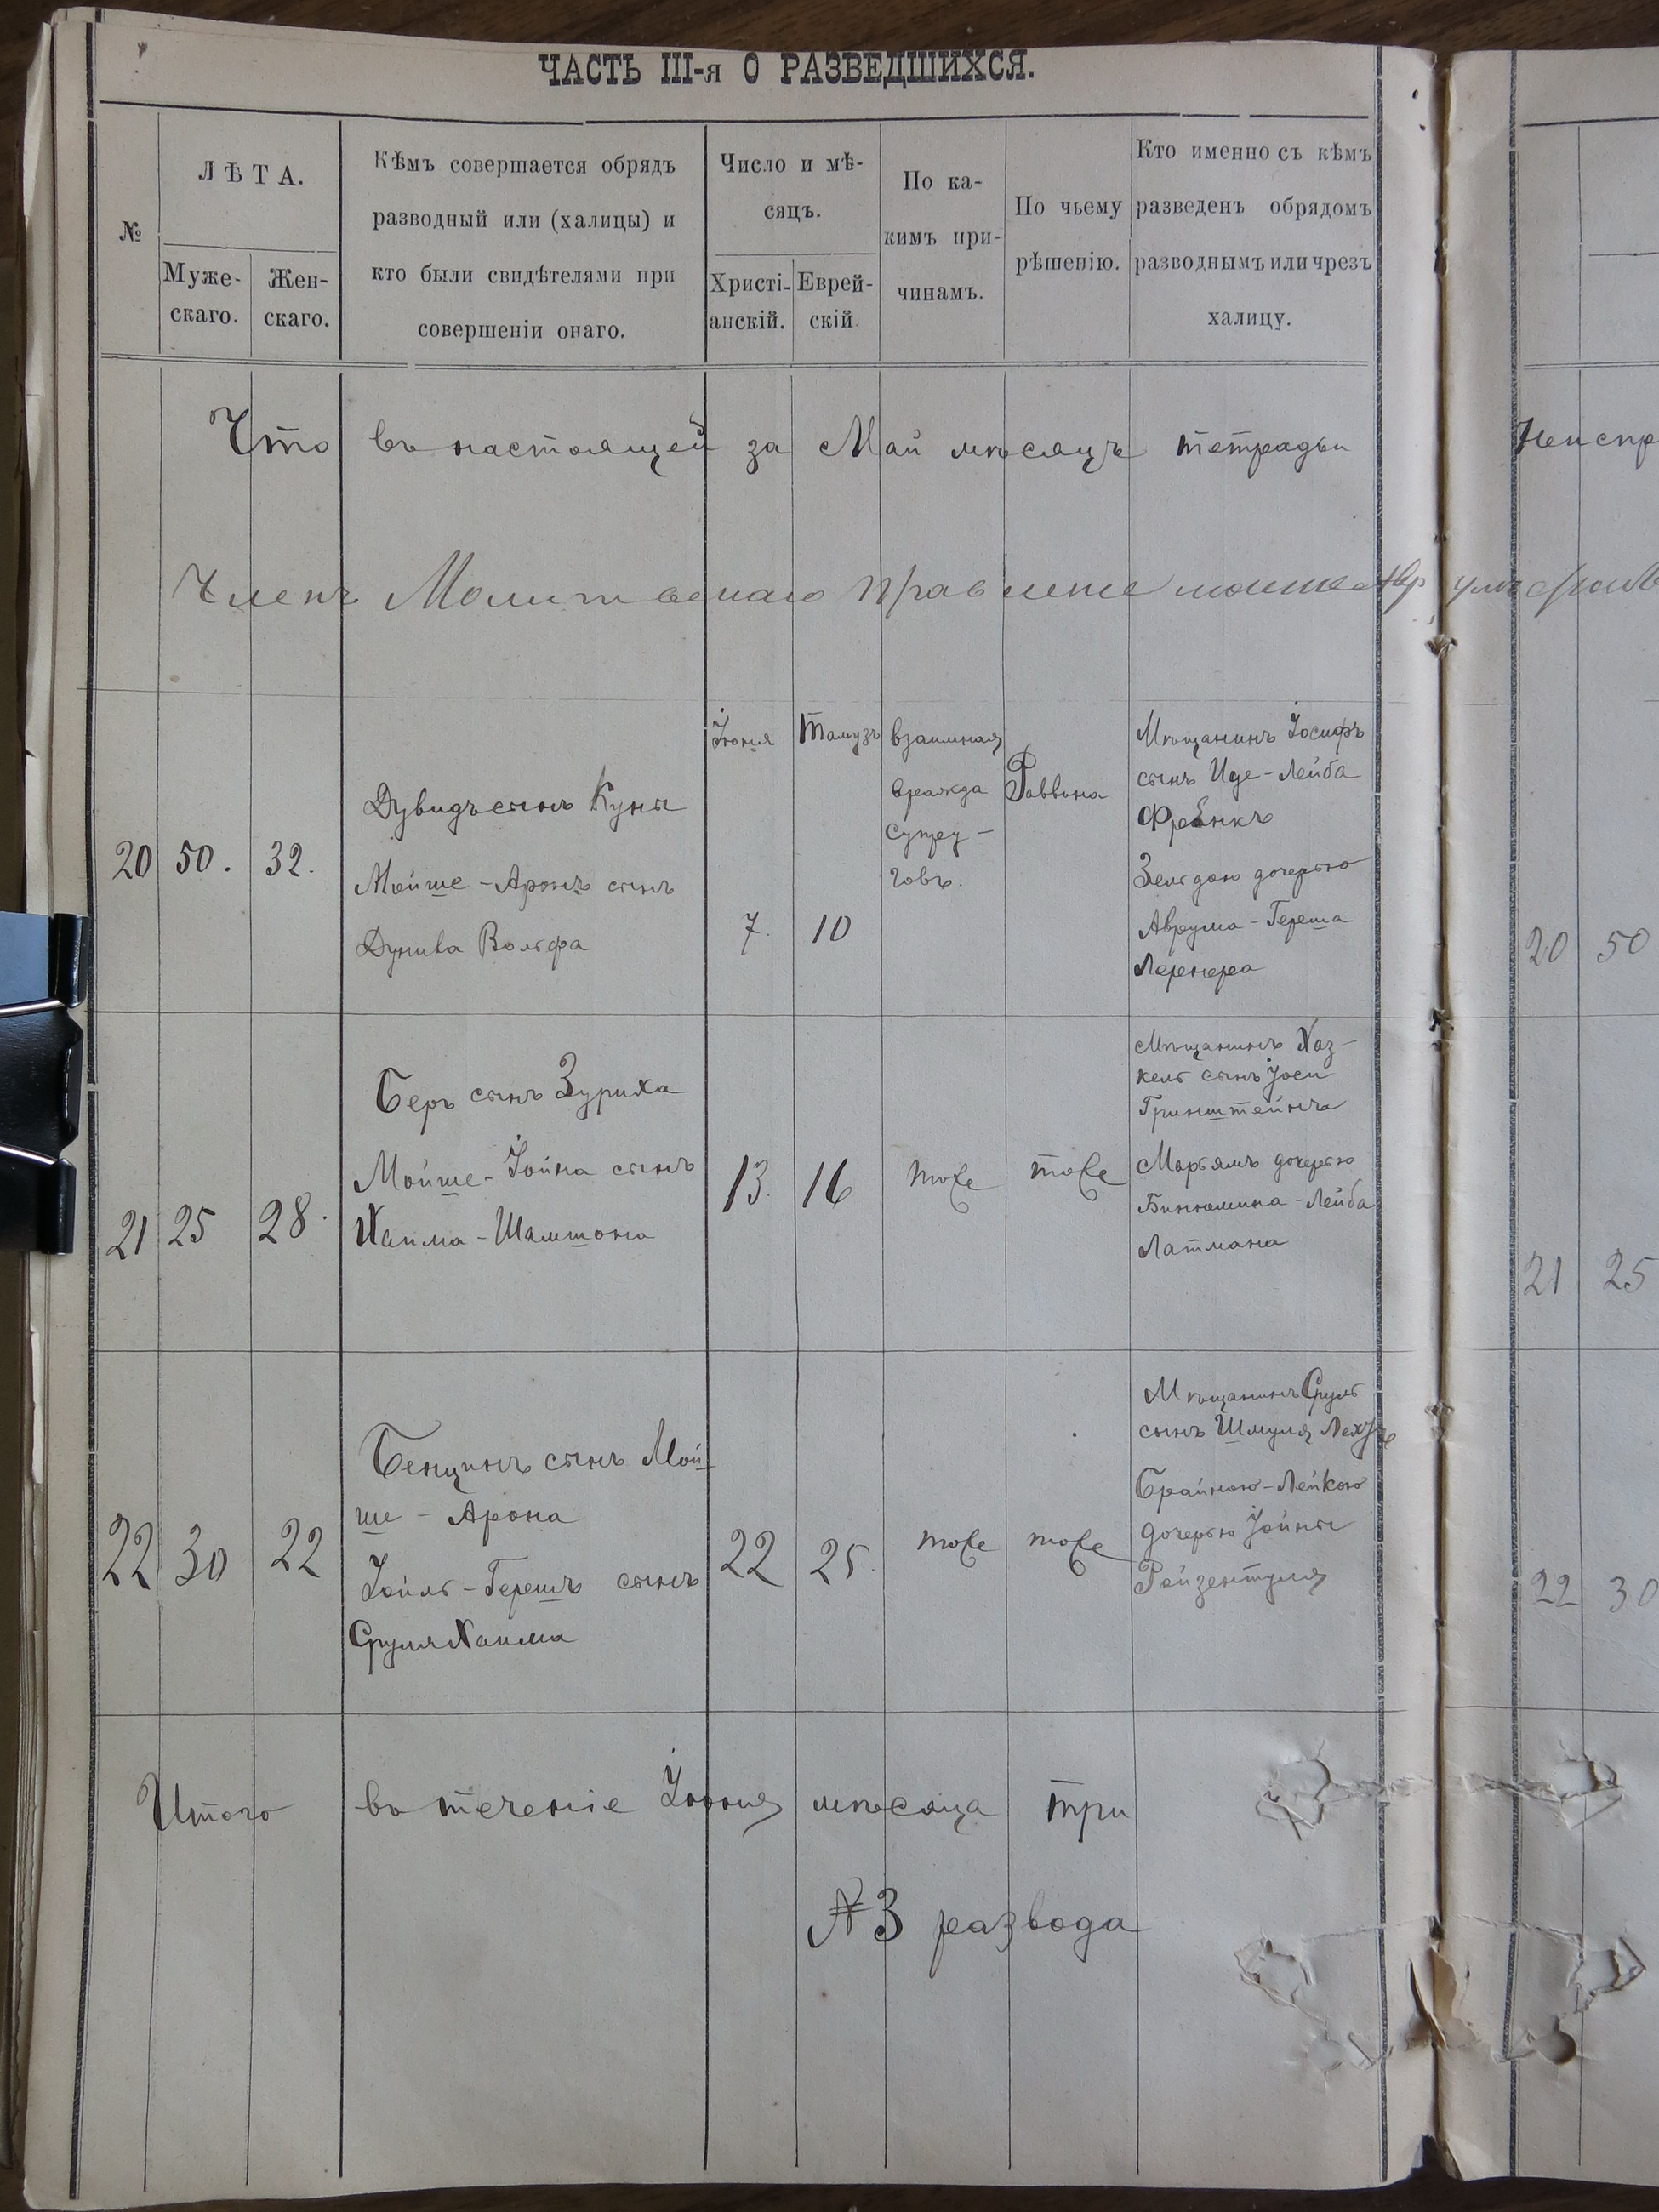 ЧАСТЬ III-я О РАЗВЕДШИХСЯ.
№
ЛѢТА.
Муже-
скаго.
Жен-
скаго.
Кѣмъ совершается обрядъ
разводный или (халицы) и
кто были свидѣтелями при
совершеніи онаго.
Число и мѣ-
сяцъ.
Христі-
анскій.
Еврей-
скій
По ка-
кимъ при-
чинамъ.
По чьему
рѣшенію.
Кто именно съ кѣмъ
разведенъ обрядомъ
разводнымъ или чрезъ
халицу.
Что въ настоящей за Май мѣсяцъ тетради
Неиспр
Членъ Молитвенаго Правленie
20 50. 32.
Дувидъ сынъ Куны
Мойше-Аронъ сынъ
Вольфа
Іюня
7.
Тамузъ
10
взаимная
вражда
супру-
говъ.
Раввина
Мѣщанинъ Іосифъ
сынъ Иде-Лейба
Френкъ
Зельдою дочерью
Аврума-Герша
20 50
21 25 28.
Беръ сынъ Зуриха
Мойше-Іойна сынъ
Хаима-Шамшона
13. 16 тоже тоже
Мѣщанинъ Хаз-
кель сынъ Іоси
Гринштейнъ
Марьямъ дочерью
Бинюмина-Лейба
Латмана
21 25
22 30 22
Бенцинъ сынъ Мой-
ше-Арона
Іойль-Гершъ сынъ
Сруля Хаима
22 25. тоже тоже
Мѣщанинъ Сруль
сынъ Шмуля
Брайною-Лейкою
дочерью Іойны
Ройзентуля
22 30
Итого въ теченіе Іюня мѣсяца три
№ 3 развода